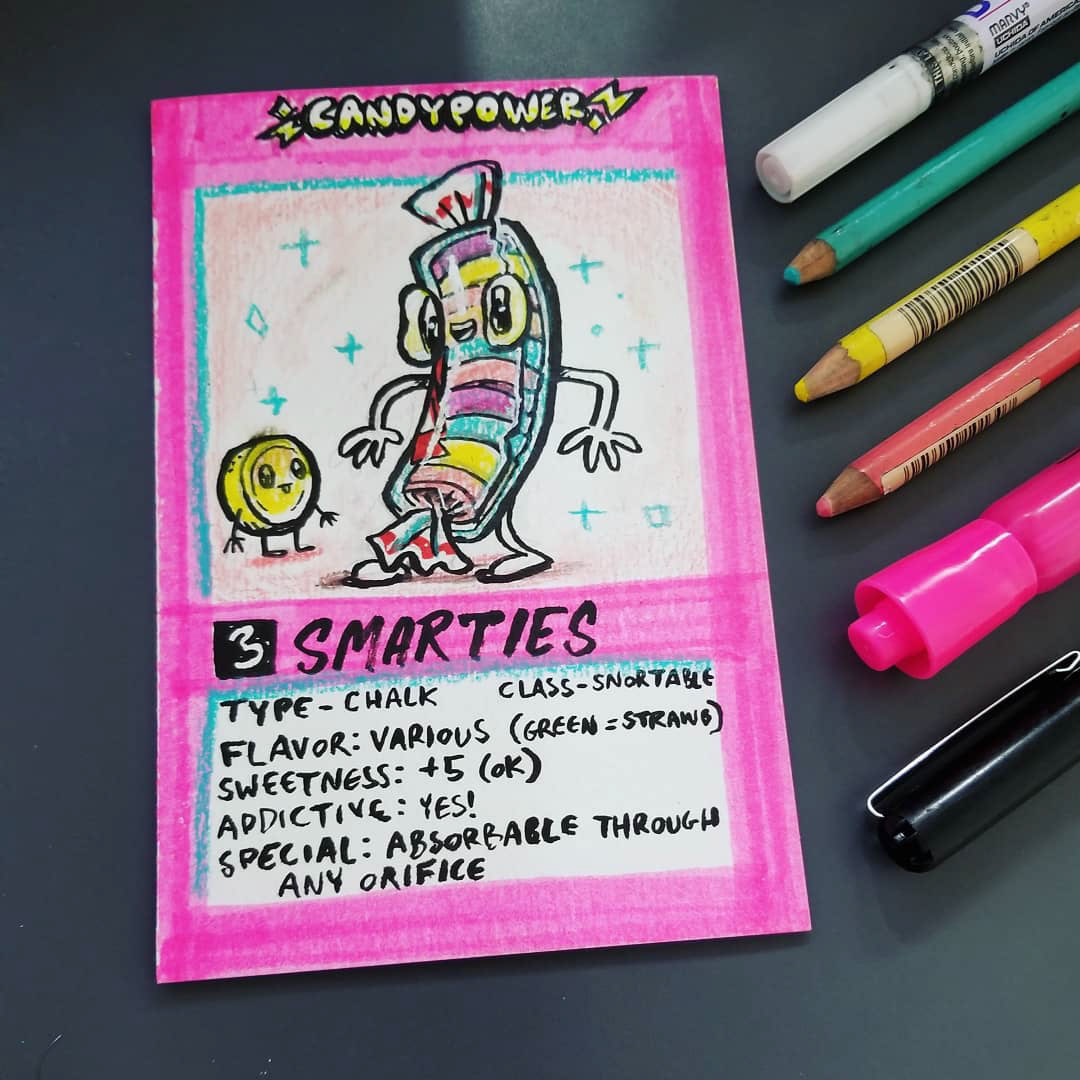 CANDYPOWER
3 SMARTIES
TYPE - CHALK CLASS - SNORTABLE
FLAVOR: VARIOUS (GREEN = STRAWB)
SWEETNESS: +5 (OK)
ADDICTIVE: YES!
SPECIAL: ABSORBABLE THROUGH
ANY ORIFICE
MARVY®
UCHIDA
UCHIDA OF AMERICA